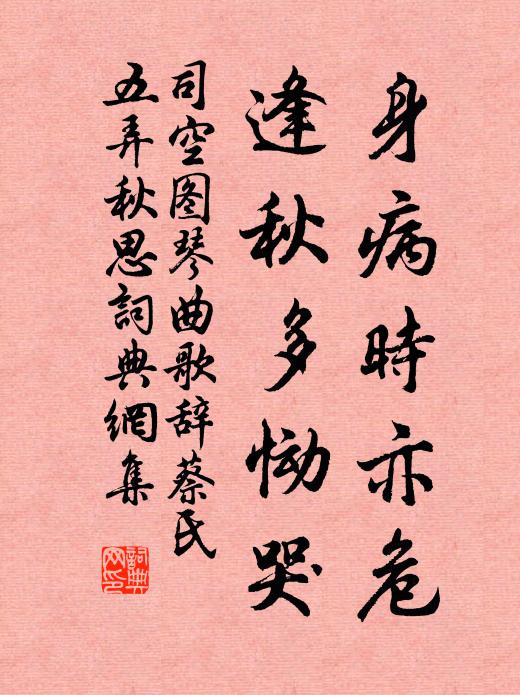 身病時亦危
逢秋多慟哭
司空图琴曲歌辞蔡氏
五弄秋思詞典網集
詞典网印